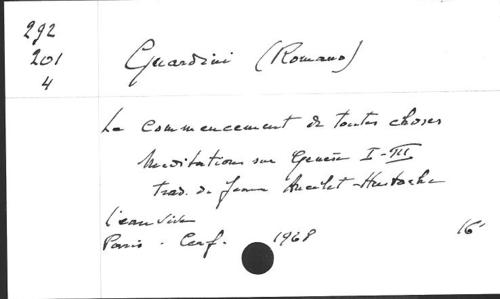 292
201
4
Guardini (Romano)
Le commencement de toutes choses
Meditations sur Genèse I-III
trad. de Jeanne Ancelet-Hustache
l'eau vive
Paris. Cerf. 1968 16°